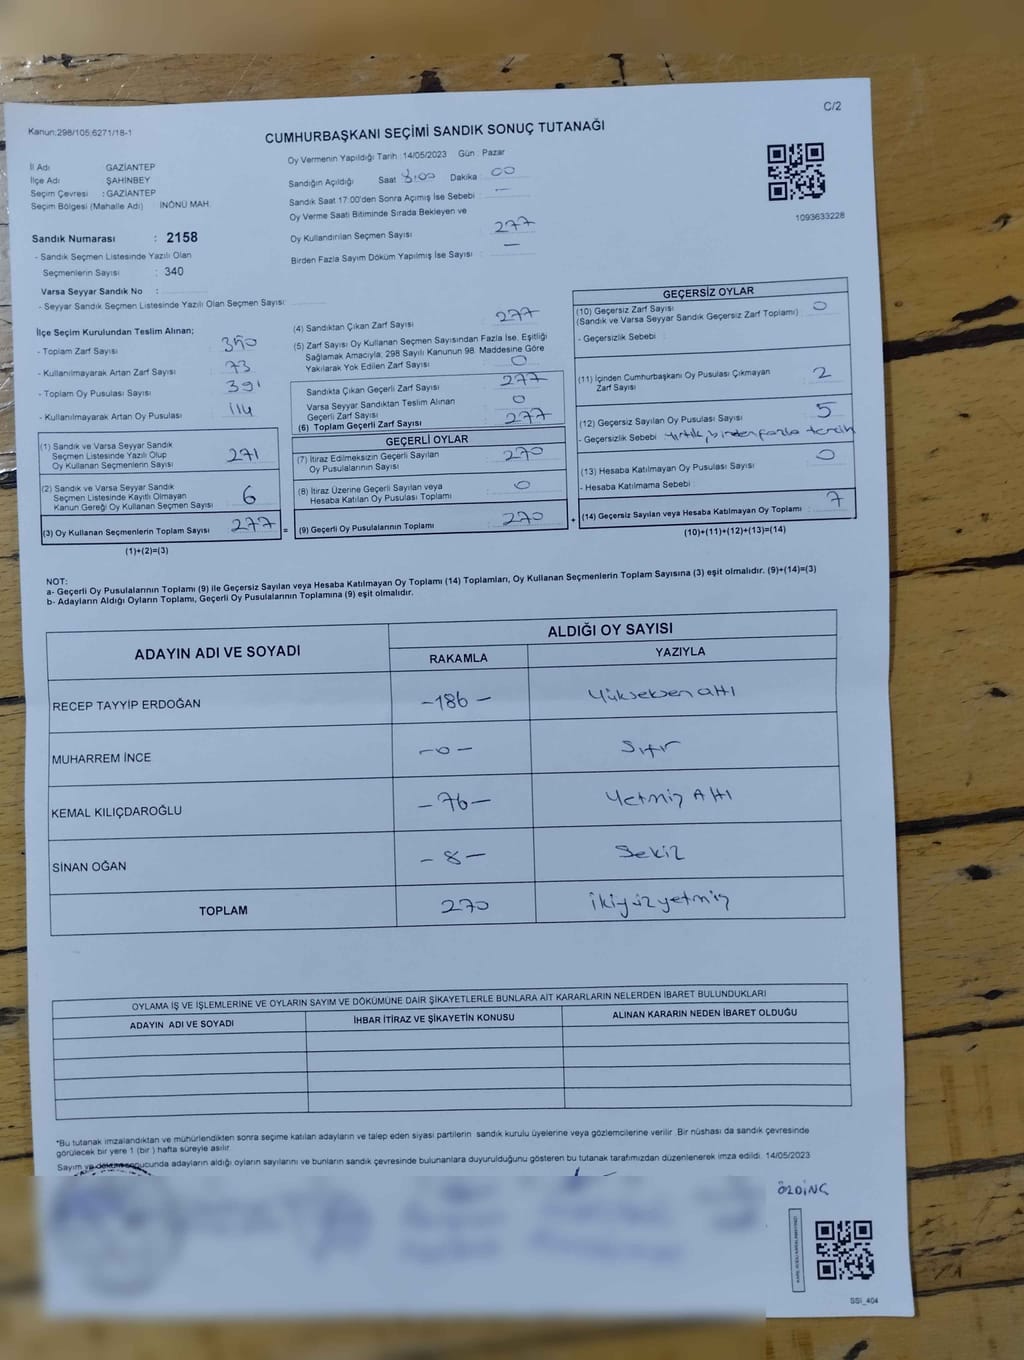 C/2
Kanun:298/105;6271/18-1
CUMHURBAŞKANI SEÇİMİ SANDIK SONUÇ TUTANAĞI
İl Adı GAZİANTEP
İlçe Adı ŞAHİNBEY
Seçim Çevresi : GAZİANTEP
Seçim Bölgesi (Mahalle Adı) İNÖNÜ MAH.
Sandık Numarası : 2158
- Sandık Seçmen Listesinde Yazılı Olan
Seçmenlerin Sayısı : 340
Varsa Seyyar Sandık No :
- Seyyar Sandık Seçmen Listesinde Yazılı Olan Seçmen Sayısı:
Oy Vermenin Yapıldığı Tarih : 14/05/2023 Gün : Pazar
Sandığın Açıldığı Saat 8:00 Dakika 00
Sandık Saat 17:00'den Sonra Açımış İse Sebebi : —
Oy Verme Saati Bitiminde Sırada Bekleyen ve
Oy Kullandırılan Seçmen Sayısı : 277
Birden Fazla Sayım Döküm Yapılmış İse Sayısı : —
1093633228
İlçe Seçim Kurulundan Teslim Alınan;
- Toplam Zarf Sayısı : 350
- Kullanılmayarak Artan Zarf Sayısı : 73
- Toplam Oy Pusulası Sayısı : 391
- Kullanılmayarak Artan Oy Pusulası : 114
(1) Sandık ve Varsa Seyyar Sandık
Seçmen Listesinde Yazılı Olup
Oy Kullanan Seçmenlerin Sayısı : 271
(2) Sandık ve Varsa Seyyar Sandık
Seçmen Listesinde Kayıtlı Olmayan
Kanun Gereği Oy Kullanan Seçmen Sayısı : 6
(3) Oy Kullanan Seçmenlerin Toplam Sayısı : 277 =
(1)+(2)=(3)
(4) Sandıktan Çıkan Zarf Sayısı : 277
(5) Zarf Sayısı Oy Kullanan Seçmen Sayısından Fazla İse, Eşitliği
Sağlamak Amacıyla, 298 Sayılı Kanunun 98. Maddesine Göre
Yakılarak Yok Edilen Zarf Sayısı : 0
Sandıkta Çıkan Geçerli Zarf Sayısı : 277
Varsa Seyyar Sandıktan Teslim Alınan
Geçerli Zarf Sayısı : 0
(6) Toplam Geçerli Zarf Sayısı : 277
GEÇERLİ OYLAR
(7) İtiraz Edilmeksizin Geçerli Sayılan
Oy Pusulalarının Sayısı : 270
(8) İtiraz Üzerine Geçerli Sayılan veya
Hesaba Katılan Oy Pusulası Toplamı : 0
(9) Geçerli Oy Pusulalarının Toplamı : 270 +
GEÇERSİZ OYLAR
(10) Geçersiz Zarf Sayısı : 0
(Sandık ve Varsa Seyyar Sandık Geçersiz Zarf Toplamı)
- Geçersizlik Sebebi :
(11) İçinden Cumhurbaşkanı Oy Pusulası Çıkmayan
Zarf Sayısı : 2
(12) Geçersiz Sayılan Oy Pusulası Sayısı : 5
- Geçersizlik Sebebi Yırtık, birden fazla tercih
(13) Hesaba Katılmayan Oy Pusulası Sayısı : 0
- Hesaba Katılmama Sebebi :
(14) Geçersiz Sayılan veya Hesaba Katılmayan Oy Toplamı : 7
(10)+(11)+(12)+(13)=(14)
NOT:
a- Geçerli Oy Pusulalarının Toplamı (9) ile Geçersiz Sayılan veya Hesaba Katılmayan Oy Toplamı (14) Toplamları, Oy Kullanan Seçmenlerin Toplam Sayısına (3) eşit olmalıdır. (9)+(14)=(3)
b- Adayların Aldığı Oyların Toplamı, Geçerli Oy Pusulalarının Toplamına (9) eşit olmalıdır.
ADAYIN ADI VE SOYADI ALDIĞI OY SAYISI
RAKAMLA YAZIYLA
RECEP TAYYİP ERDOĞAN -186- Yükseksen altı
MUHARREM İNCE -0- Sıfır
KEMAL KILIÇDAROĞLU -76- Yetmiş Altı
SİNAN OĞAN -8- Sekiz
TOPLAM 270 ikiyüzyetmiş
OYLAMA İŞ VE İŞLEMLERİNE VE OYLARIN SAYIM VE DÖKÜMÜNE DAİR ŞİKAYETLERLE BUNLARA AİT KARARLARIN NELERDEN İBARET BULUNDUKLARI
ADAYIN ADI VE SOYADI İHBAR İTİRAZ VE ŞİKAYETİN KONUSU ALINAN KARARIN NEDEN İBARET OLDUĞU
*Bu tutanak imzalandıktan ve mühürlendikten sonra seçime katılan adayların ve talep eden siyasi partilerin sandık kurulu üyelerine veya gözlemcilerine verilir. Bir nüshası da sandık çevresinde
görülecek bir yere 1 (bir) hafta süreyle asılır.
Sayım ve döküm sonucunda adayların aldığı oyların sayılarını ve bunların sandık çevresinde bulunanlara duyurulduğunu gösteren bu tutanak tarafımızdan düzenlenerek imza edildi. 14/05/2023
ÖZDİNÇ
SSİ_404